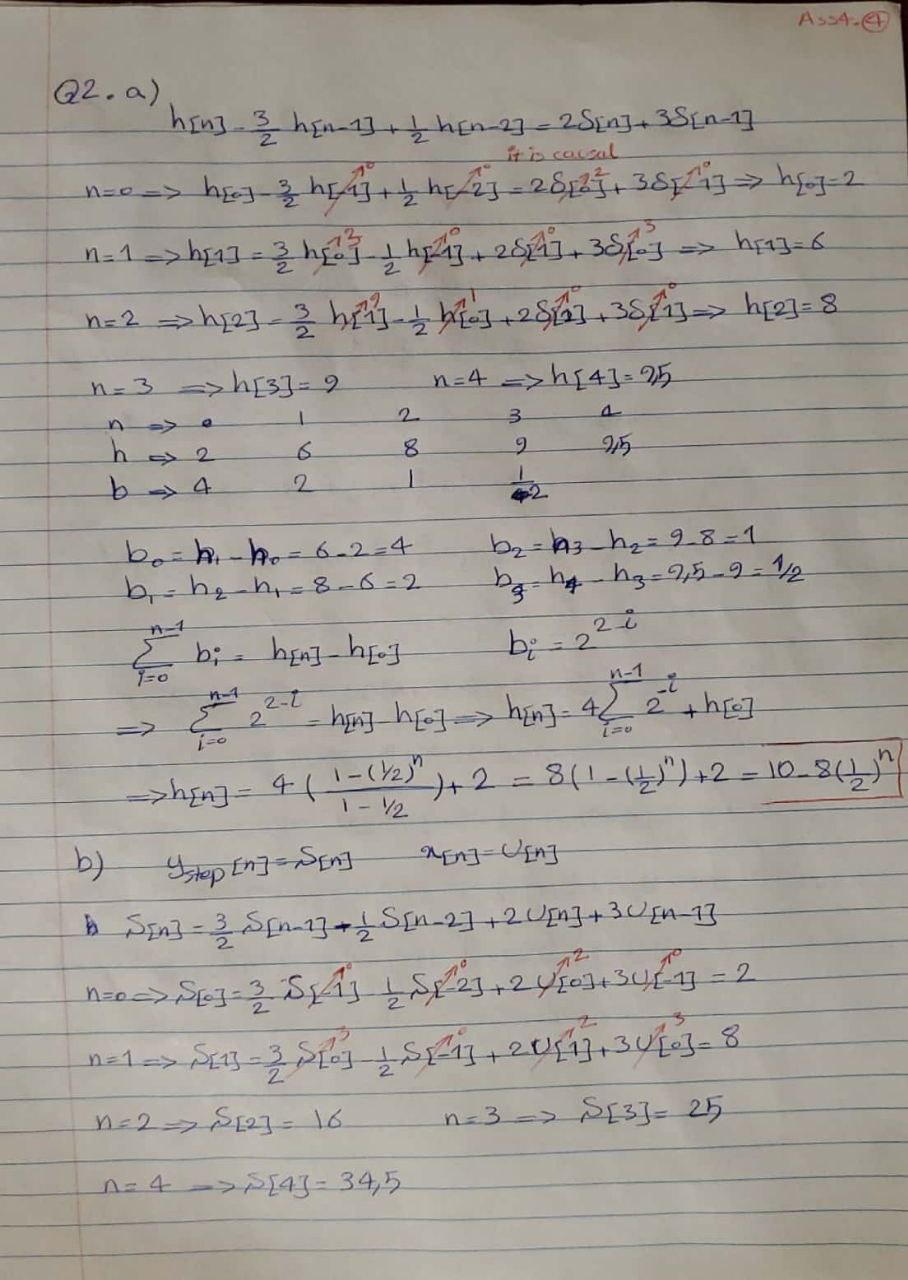 Ass4. 4
Q2. a)
h[n] - 3/2 h[n-1] + 1/2 h[n-2] = 2δ[n] + 3δ[n-1]
it is causal
n=0 => h[0] - 3/2 h[-1]↗0 + 1/2 h[-2]↗0 = 2δ[0]↗2 + 3δ[-1]↗0 => h[0]=2
n=1 => h[1] = 3/2 h[0]↗3 - 1/2 h[-1]↗0 + 2δ[1]↗0 + 3δ[0]↗3 => h[1]=6
n=2 => h[2] = 3/2 h[1]↗9 - 1/2 h[0]↗1 + 2δ[2]↗0 + 3δ[1]↗0 => h[2]=8
n=3 => h[3]=9 n=4 => h[4]=9,5
n => 0 1 2 3 4
h => 2 6 8 9 9,5
b => 4 2 1 1/2
b₀ = h₁ - h₀ = 6-2=4 b₂ = h₃ - h₂ = 9-8=1
b₁ = h₂ - h₁ = 8-6=2 b₃ = h₄ - h₃ = 9,5-9=1/2
∑_{i=0}^{n-1} bᵢ = h[n] - h[0] bᵢ = 2^{2-i}
=> ∑_{i=0}^{n-1} 2^{2-i} = h[n] - h[0] => h[n] = 4∑_{i=0}^{n-1} 2^{-i} + h[0]
=> h[n] = 4((1-(1/2)^n)/(1-1/2)) + 2 = 8(1-(1/2)^n)+2 = 10-8(1/2)^n
b) y_step[n] = S[n] x[n] = U[n]
S[n] = 3/2 S[n-1] - 1/2 S[n-2] + 2U[n] + 3U[n-1]
n=0 => S[0] = 3/2 S[-1]↗0 - 1/2 S[-2]↗0 + 2U[0]↗2 + 3U[-1]↗0 = 2
n=1 => S[1] = 3/2 S[0]↗3 - 1/2 S[-1]↗0 + 2U[1]↗2 + 3U[0]↗3 = 8
n=2 => S[2] = 16 n=3 => S[3] = 25
n=4 => S[4] = 34,5